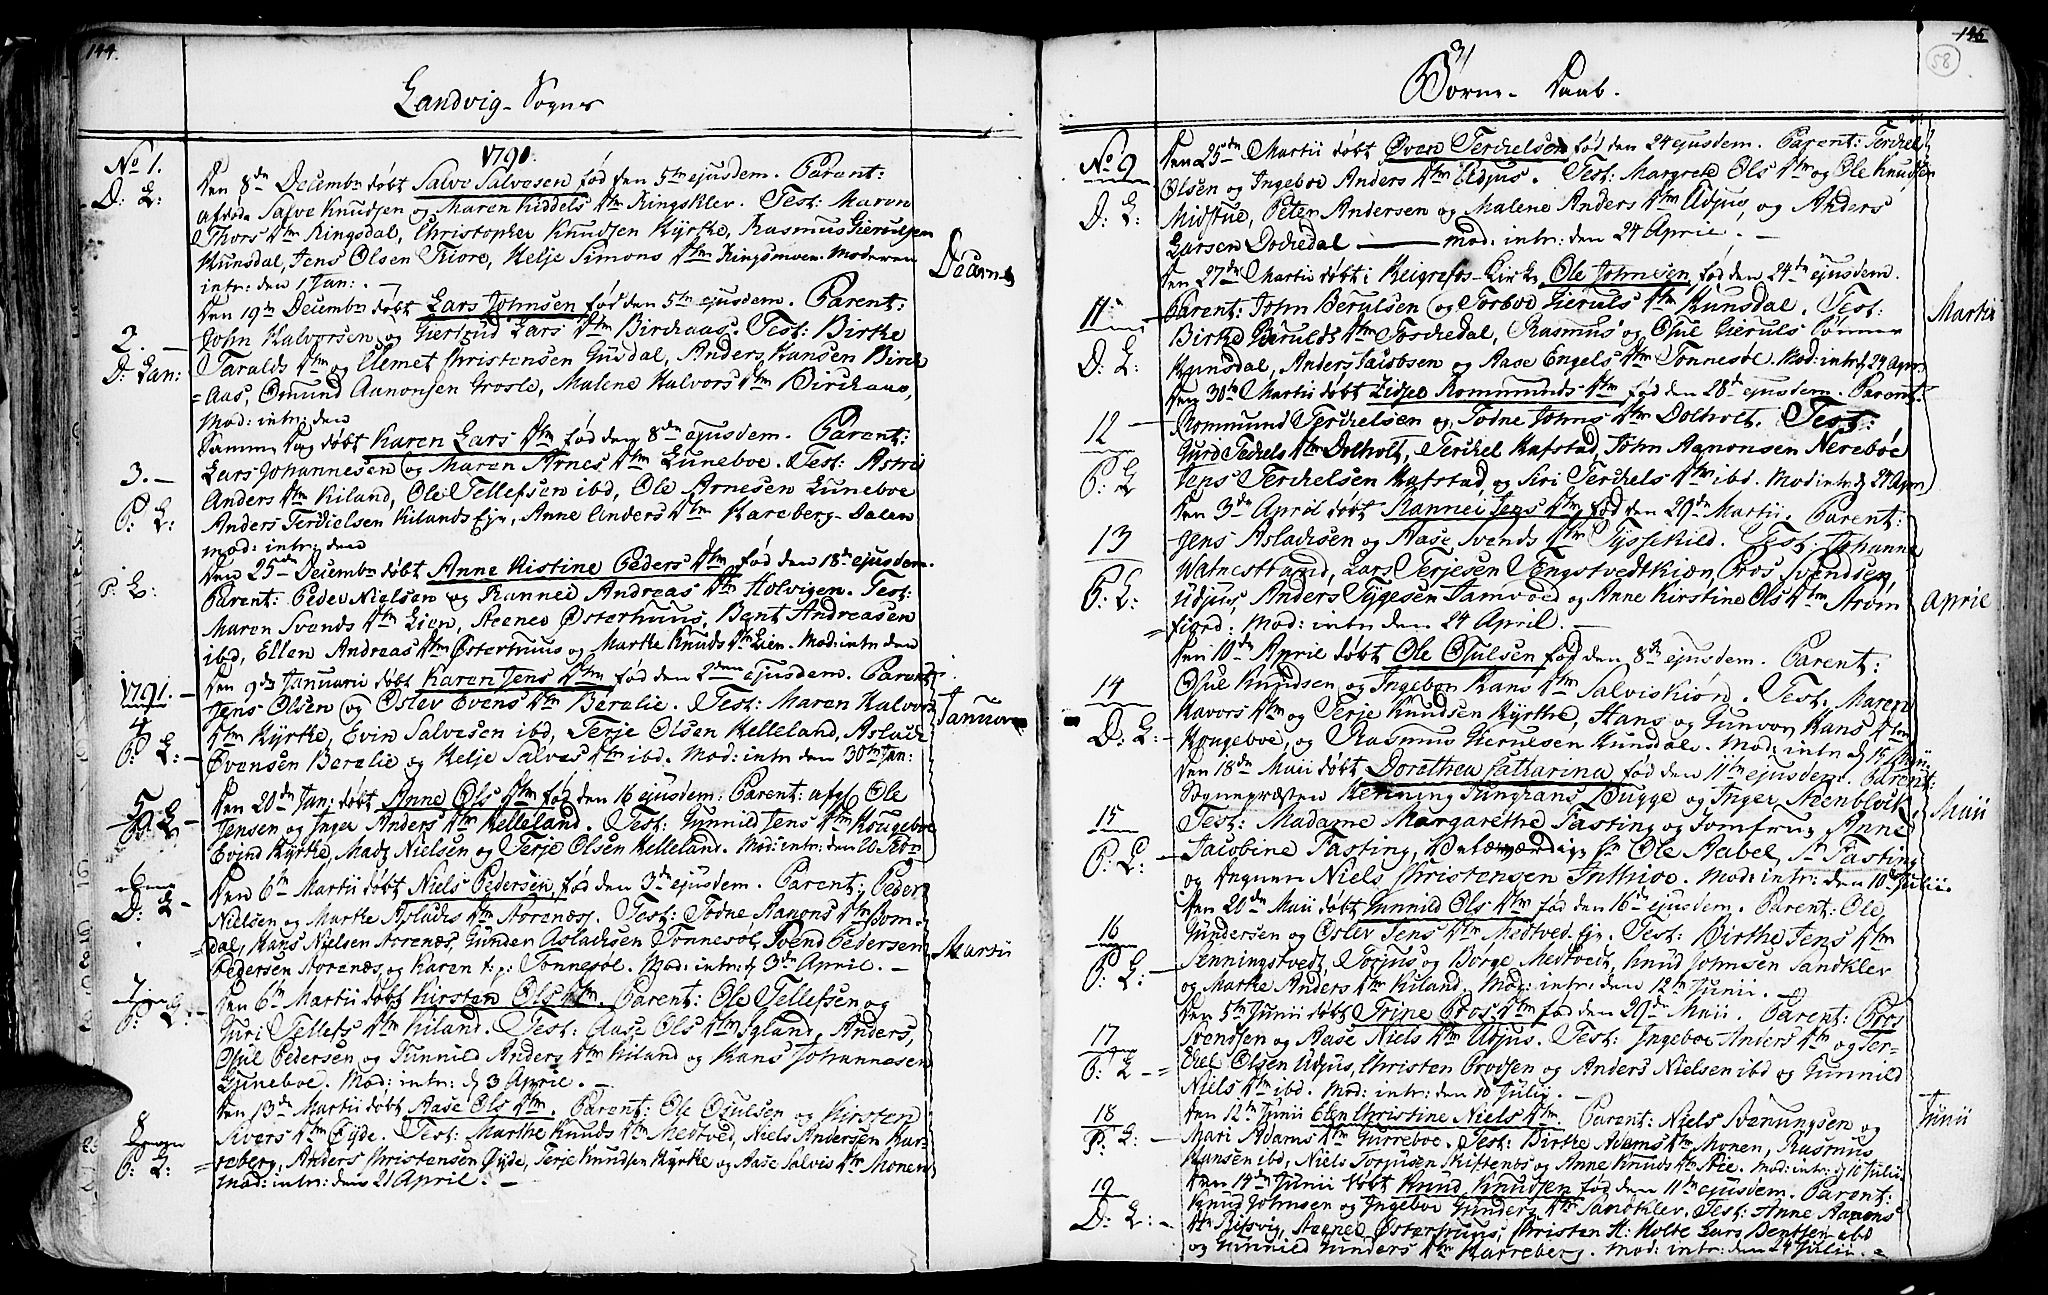 144.
Landvig - Sogns
1790.
No 1.
D: L:
Den 8de Decembr døbt Salve Salvesen født den 5te ejusdem. Parent:
Salve Knudsen og Maren Kiddels Dtr Ringsklev. Test: Maren
Thors Dtr Ringsdal, Christopher Knudsen Kyrke, Rasmus Gierulsen
Kunsdal, Jens Olsen Fiore, Helje Simons Dtr Ringsmoen. Moderen
intr: den 1 Jan: -
Decembr
2. -
D: Lan:
Den 19de Decembr døbt Lars Johnsen fød den 5te ejusdem. Parent:
John Halvorsen og Giertrud Lars Dtr Birchaas. Test: Birthe
Taralds Dtr og Clemet Christensen Gusdal, Anders Hansen Birch
=aas, Omund Aanonsen Grosle, Malene Halvors Dtr Birchaas,
Mod: intr: den
3. -
P: L:
Samme Dag døbt Karen Lars Dtr fød den 8de ejusdem. Parent:
Lars Johannesen og Maren Arnes Dtr Luneboe. Test: Astri
Anders Dtr Kiland, Ole Tellefsen ibd, Ole Arnesen Luneboe
Anders Terchelsen Kilands Eje, Anne Anders Dtr Hareberg-Dalen
mod: intr: den
P: L:
Den 25de Decembr døbt Anne Kistine Peders Dtr fød den 18de ejusdem.
Parent: Peder Nielsen og Rannei Andreas Dtr Holvigen. Test:
Maren Svends Dtr Lien, Aanen Østerhuus, Bent Andreasen
ibd, Ellen Andreas Dtr Østerhuus og Marthe Knuds Dtr Lien. Mod: intr den
1791. -
4
P: L: -
Den 9de Januarii døbt Karen Jens Dtr fød den 2den ejusdem. Parent:
Jens Olsen og Oslev Evens Dtr Beralie. Test: Maren Halvors
Dtr Kyrke, Evin Salvesen ibd, Terje Olsen Kelleland, Aslach
Evensen Beralie og Helje Salves Dtr ibd. Mod: intr den 30te Jan:
Januar
5
P: L
Den 20de Jan: døbt Anne Ols Dtr fød den 16 ejusdem. Parent: afgl Ole
Jensen og Inger Anders Dtr Kelleland. Test: Gunnild Jens Dtr Kougeboe
Evind Kyrke, Madz Nielsen og Terje Olsen Kelleland. Mod: intr: den 20 Febr
6
D: L -
Den 6te Martii døbt Niels Pedersen, fød den 3de ejusdem. Parent: Peder
Nielsen og Marthe Asladis Dtr Aorenæs. Test: Todne Hanons Dtr Dom-
dal, Hans Nielsen Aorenæs, Gunder Asladisen Tønnesøl, Svend Pedersen
Pedersen Aorenæs og Karen t: p: Tønnesøl. Mod: intr: d 3de April. -
Martii
7
P: L: -
Den 6te Martii døbt Kirsten Ols Dtr. Parent: Ole Tellefsen og
Guri Tellefs Dtr Kiland. Test: Aase Ols Dtr Igland, Anders,
Osul Pedersen og Gunnild Anders Dtr Kiland og Hans Johannesen
Luneboe. Mod: intr: d 3 April. -
8
P: L:
Den 13de Martii døbt Aase Ols Dtr. Parent: Ole Osulsen og Kirsten
Sivers Dtr Øyde. Test: Marthe Knuds Dtr Medtved, Niels Andersen Har-
=reberg, Anders Christensen Øyde, Terje Knudsen Kyrke og Aase Salvis Dtr Monen
Mod: intr: den 21 April. -
145
58
31
Børne - Daab.
No 9
D: L:
Den 25de Martii døbt Øven Terchelsen fød den 24 ejusdem. Parent: Terchel
Olsen og Ingeboe Anders Dtr Udjus. Test: Margrete Ols Dtr og Ole Knudsen
Midstue, Peter Andersen og Malene Anders Dtr Udjus, og Anders
Larsen Dochedal — mod: intr: den 24 April. -
11
D: L:
Den 27de Martii døbt i Heigrefos-Kirke Ole Johnsen, fød den 24de ejusdem.
Parent: John Berulsen og Torboe Gieruls Dtr Kunsdal. Test:
Birthe Gierulds Dtr Dochedal, Rasmus og Osul Gieruls Sønner
Kunsdal, Anders Jacobsen og Aase Engels Dtr Tonnesøl. Mod: intr d 24 Apr
Martii
12 -
P: L
Den 30te Martii døbt Lidje Rommunds Dtr fød den 28de ejusdem. Parent:
Rommund Terchelsen og Todne Johns Dtr Dolholt. Test:
Gurid Techels Dtr Dolholt, Terchel Hafstad, John Aanonsen Nereboe
Jens Terchelsen Hafstad, og Siri Terchels Dtr ibd. Mod intr d 24 Apr
13
P: L:
Den 3de April døbt Rannei Jens Dtr, fød den 29de Martii. Parent:
Jens Asladsen og Aase Svends Dtr Tysschild. Test: Johanne
Watnestrand, Lars Terjesen Tengstvedtkiøn, Bros Svendsen,
Udjus, Anders Tygesen Tamvoed og Anne Kirstine Ols Dtr Strøm
=fiord. Mod: intr den 24 April. -
April
14
D: L: -
Den 10de April døbt Ole Osulsen fød den 8de ejusdem. Parent:
Osul Knudsen og Ingebor Hans Dtr Salviskiøn. Test: Maren
Havors Dtr og Terje Knudsen Kyrthe, Hans og Gunvor Hans Dtr
Kougeboe, og Rasmus Gierulsen Kunsdal. Mod: intr d 15 Maii
15
P: L: -
Den 18de Maii døbt Dorothea Catharina fød den 11te ejusdem. Parent:
Sognepræsten Henning Junghans Bugge og Inger Steenblok
Test: Madame Margarethe Fasting og Jomfrue Anne
Jacobine Fasting, Velærværdige Hr Ole Aabel, Sr Fasting
og Degnen Niels Christensen Inthioe. Mod: intr: den 10de Julii.
Maii
16
P: L: -
Den 20de Maii døbt Gunnild Ols Dtr fød den 16de ejusdem. Parent: Ole
Gundersen og Oslev Jens Dtr Medtved Eje. Test: Birthe Jens Dtr
Senningstvedt, Torjus og Børge Medtvedt, Knud Johnsen Sandklev
og Marthe Anders Dtr Kiland. Mod: intr: den 12te Junii. -
17
P: L - =
Den 5te Junii døbt Trine Bros Dtr fød den 29de Maii. Parent: Bros
Svendsen og Aase Niels Dtr Udjus. Test: Ingeboe Anders Dtr og Ter-
chel Olsen Udjus, Christen Brodsen og Anders Nielsen ibd og Gunnild
Niels Dtr ibd. Mod: intr: den 10 Julii. -
18
P: L: -
Den 12te Junii Elen Christine Niels Dtr. Parent: Niels Svenungsen og
Mari Adams Dtr Gurreboe. Test: Birthe Adams Dtr Monen, Rasmus
Hansen ibd, Niels Torjusen Skiftenes og Anne Knuds Dtr Stie. Mod: intr: d 10 Julii
Junii
19
D: L: -
Den 14de Junii døbt Knud Knudsen fød den 11te ejusdem. Parent:
Knud Johnsen og Ingeboe Gunders Dtr Sandklev. Test: Anne Aanons
Dtr Ritsvig, Aanon Østerhuus, Christen H: Holte Lars Bentsen ibd
og Gunnild Gunders Dtr Harreberg. Mod: intr: den 24 Julii. -